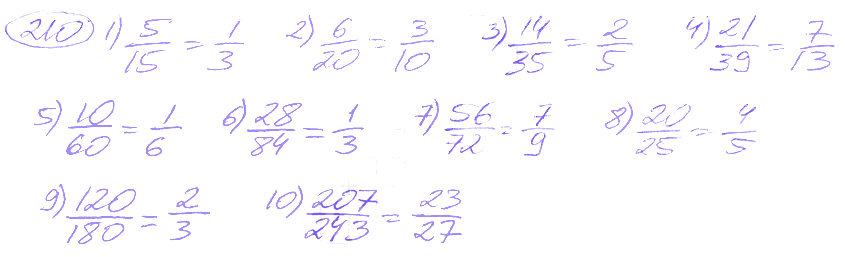 210 1) 5/15 = 1/3 2) 6/20 = 3/10 3) 14/35 = 2/5 4) 21/39 = 7/13
5) 10/60 = 1/6 6) 28/84 = 1/3 7) 56/72 = 7/9 8) 20/25 = 4/5
9) 120/180 = 2/3 10) 207/243 = 23/27